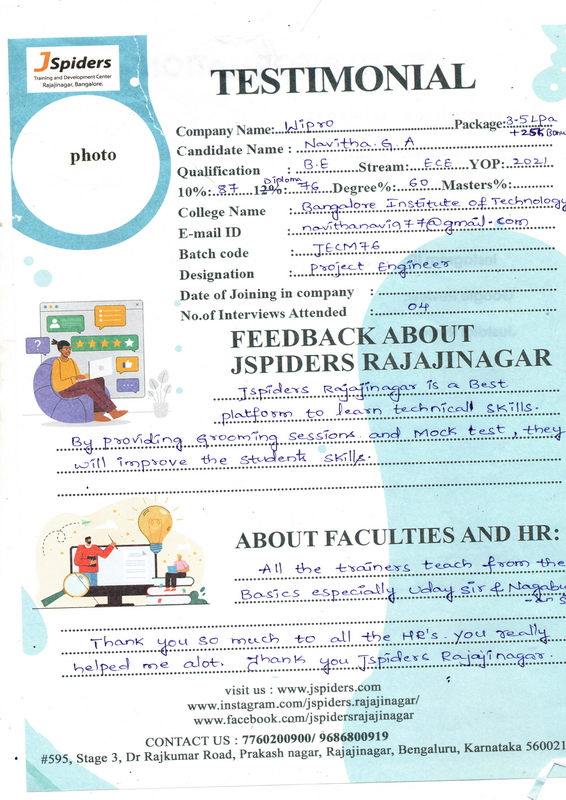 JSpiders
Training and Development Center
Rajajinagar, Bangalore.
TESTIMONIAL
photo
Company Name: Wipro Package: 3-5 Lpa
+25k Bonu
Candidate Name : Navitha. G. A
Qualification : B.E Stream: ECE YOP: 2021
Diploma
10%: 87 12%: 76 Degree%: 60 Masters%:
College Name : Bangalore Institute of Technology
E-mail ID : navithanavi977@gmail.com
Batch code : JECM76
Designation : Project Engineer
Date of Joining in company :
No.of Interviews Attended : 04
FEEDBACK ABOUT
JSPIDERS RAJAJINAGAR
Jspiders Rajajinagar is a Best
platform to learn technicall skills.
By providing Grooming sessions and Mock test, they
will improve the students skills.
ABOUT FACULTIES AND HR:
All the trainers teach from the
Basics especially Uday sir & Nagabu
Thank you so much to all the HR's you really
helped me alot. Thank you Jspiders Rajajinagar.
visit us : www.jspiders.com
www.instagram.com/jspiders.rajajinagar/
www.facebook.com/jspidersrajajinagar
CONTACT US : 7760200900/ 9686800919
#595, Stage 3, Dr Rajkumar Road, Prakash nagar, Rajajinagar, Bengaluru, Karnataka 560021